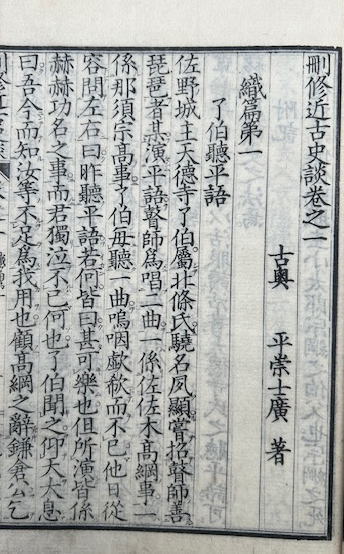 刪修近古史談卷之一
古奧　平崇士廣　著
織篇第一
了伯聽平語
佐野城主天德寺了伯屬北條氏驍名夙顯嘗招瞽師善
琵琶者演平語瞽師爲唱二曲一係佐佐木髙綱事一
係那須宗髙事了伯每聽一曲嗚咽歔欷而不已他日從
容問左右曰昨聽平語若何皆曰甚可樂也但所演皆係
赫赫功名之事而君獨泣不已何也了伯聞之仰天大息
曰吾今而知汝等不足爲我用也顧髙綱之辭鎌倉公乞